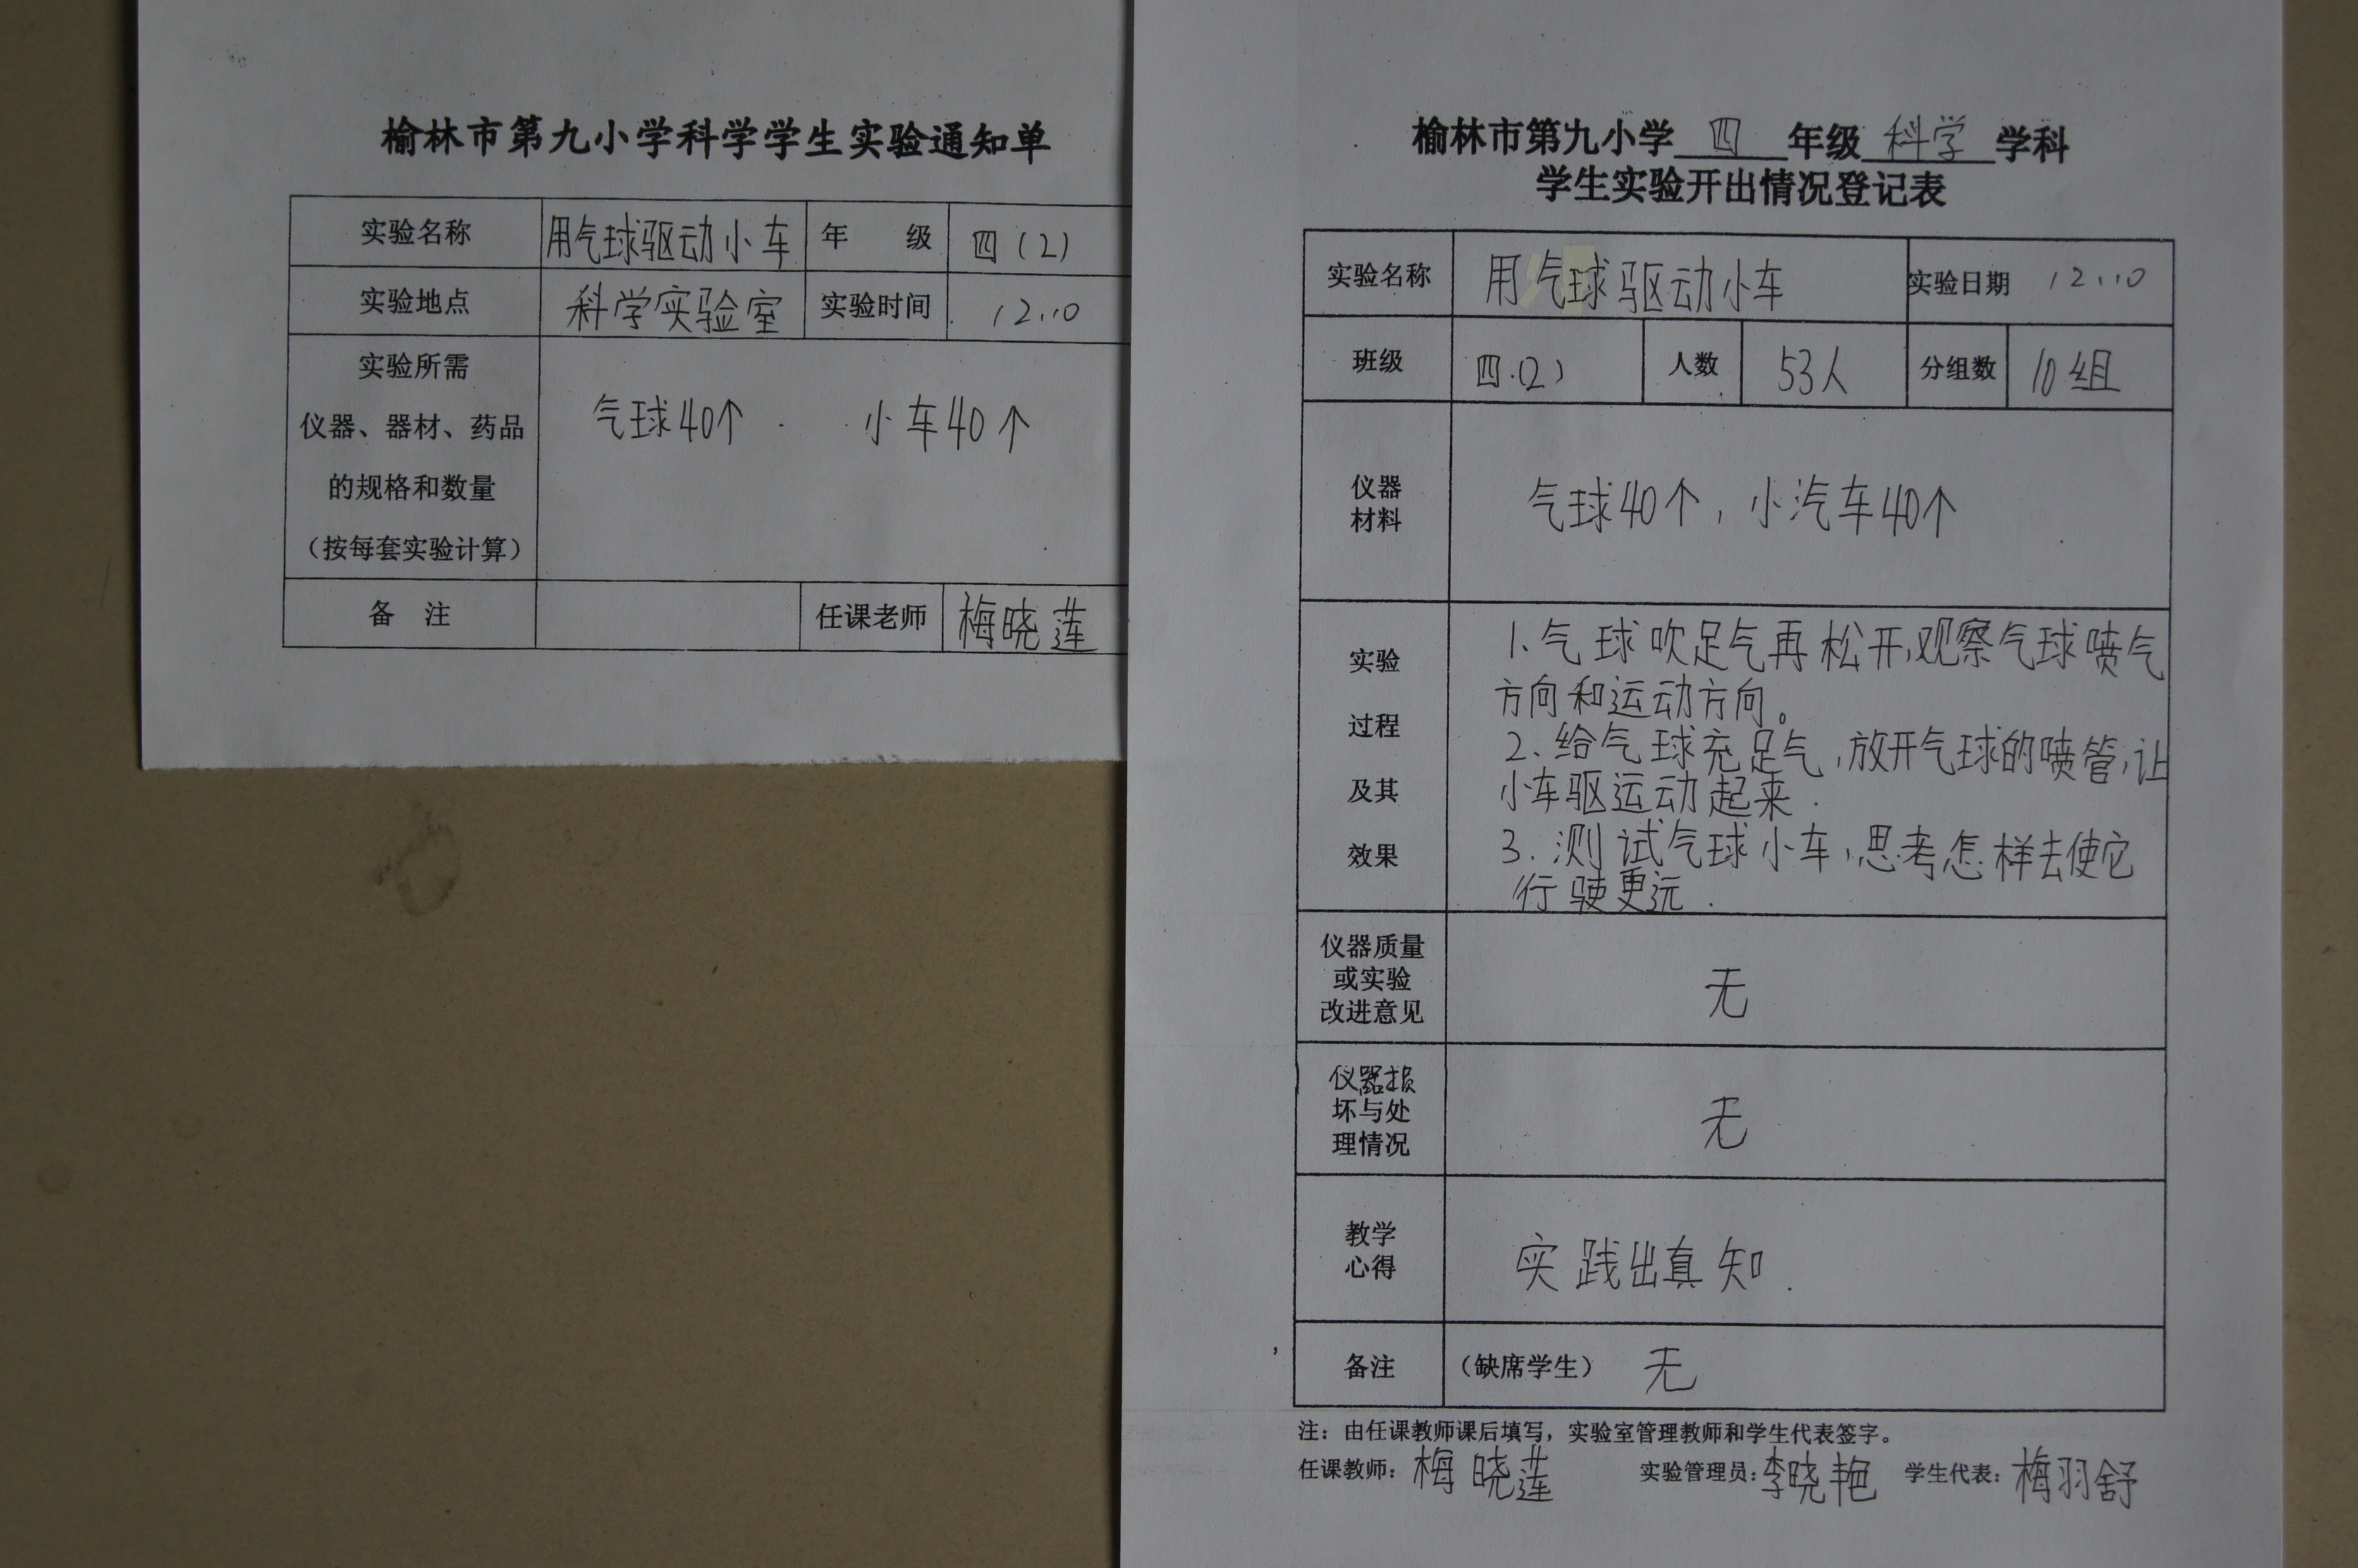 榆林市第九小学科学学生实验通知单
实验名称 用气球驱动小车 年 级 四(2)
实验地点 科学实验室 实验时间 12.10
实验所需
仪器、器材、药品
的规格和数量
(按每套实验计算)
气球40个 小车40个
备 注 任课老师 梅晓莲
榆林市第九小学 四 年级 科学 学科
学生实验开出情况登记表
实验名称 用气球驱动小车 实验日期 12.10
班级 四.(2) 人数 53人 分组数 10组
仪器
材料
气球40个,小汽车40个
实验
过程
及其
效果
1.气球吹足气再松开,观察气球喷气
方向和运动方向。
2.给气球充足气,放开气球的喷管,让
小车驱运动起来.
3.测试气球小车,思考怎样去使它
行驶更远.
仪器质量
或实验
改进意见
无
仪器损
坏与处
理情况
无
教学
心得
实践出真知.
备注 (缺席学生) 无
注:由任课教师课后填写,实验室管理教师和学生代表签字。
任课教师:梅晓莲 实验管理员:李晓艳 学生代表:梅羽舒